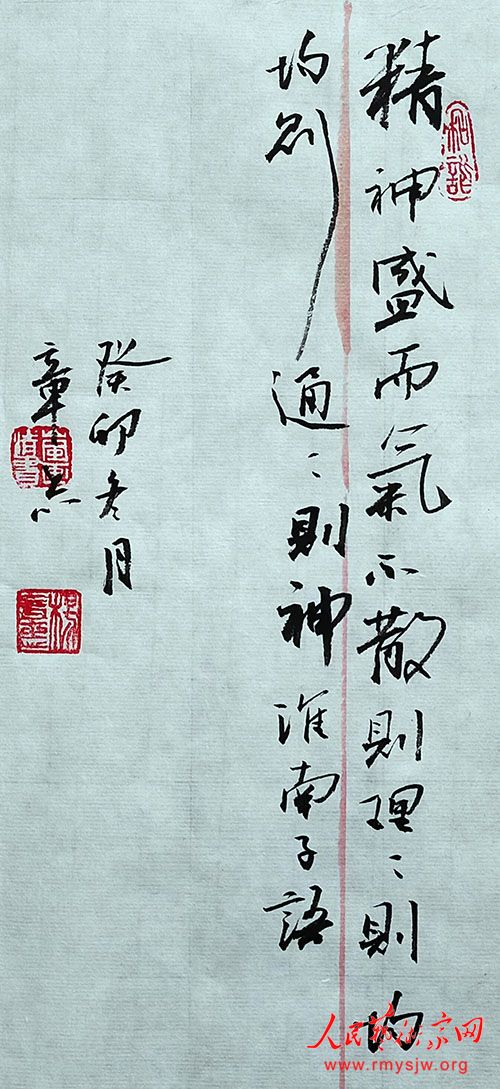 精神盛而氣不散則理〻則均
均則通〻則神 淮南子語
癸卯冬月
章
人民艺术家网
www.rmysjw.org